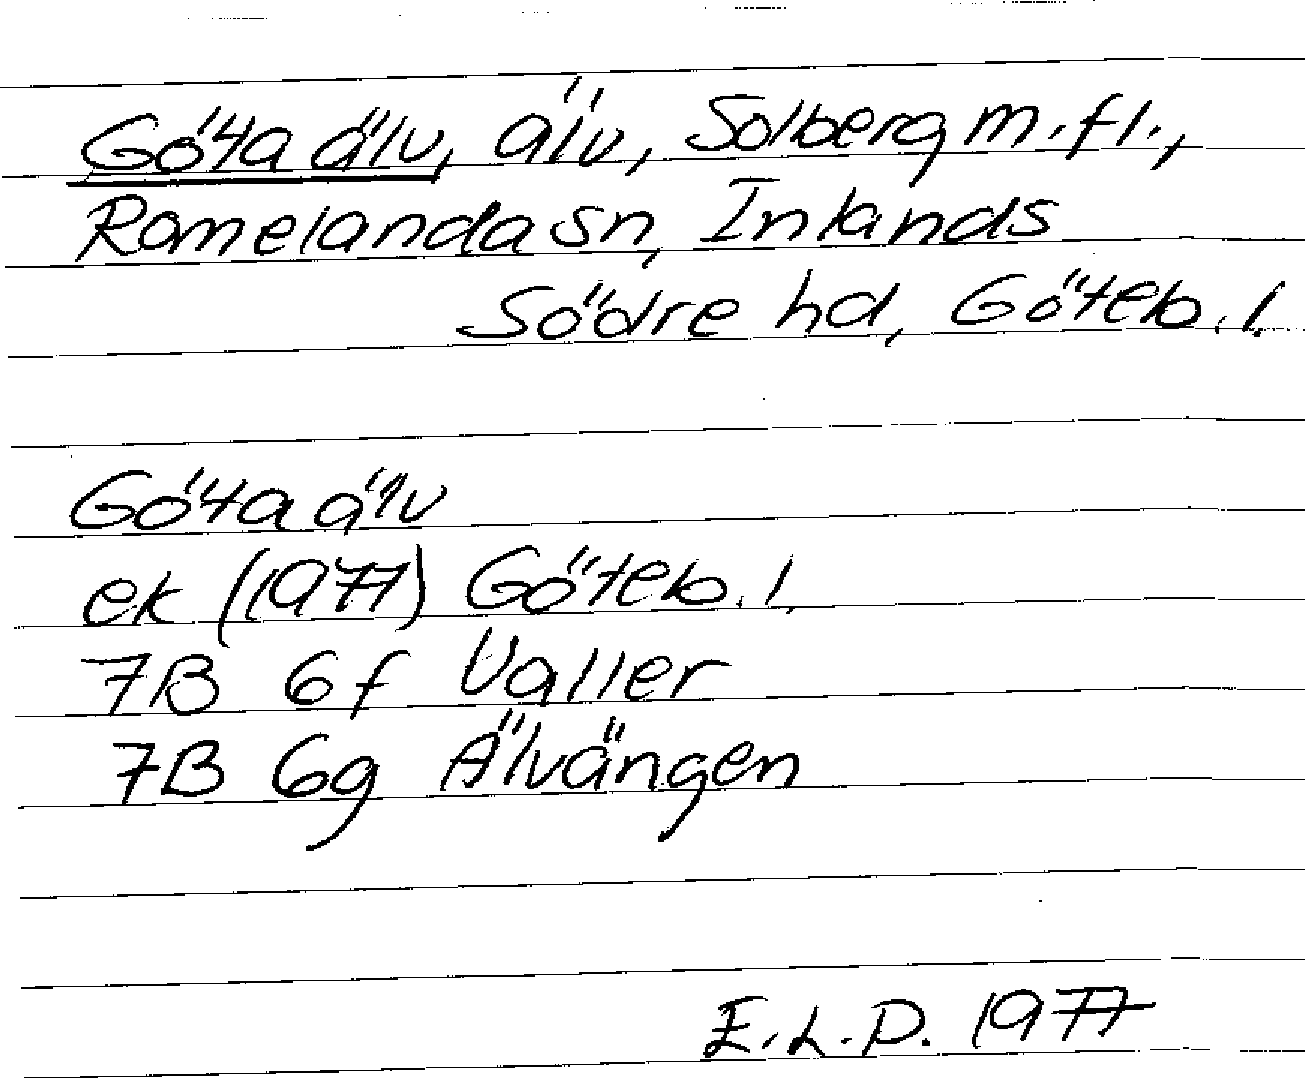 Göta älv, älv, Solberg m.fl.,
Romelanda sn, Inlands
Södre hd, Göteb. l.
Göta älv
ek (1977) Göteb. l.
7B 6f Valler
7B 6g Älvängen
E.L.P. 1977